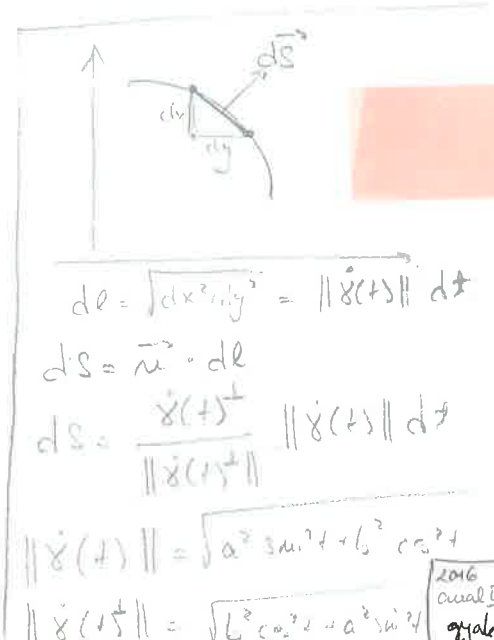 dS⃗
dx
dy
dl = √(dx² + dy²) = ||γ̇(t)|| dt
dS = n⃗ · dl
dS = γ̇(t)^⊥ / ||γ̇(t)^⊥|| ||γ̇(t)|| dt
||γ̇(t)|| = √(a² sin² t + b² cos² t
||γ̇(t)^⊥|| = √(b² cos² t + a² sin² t
2016